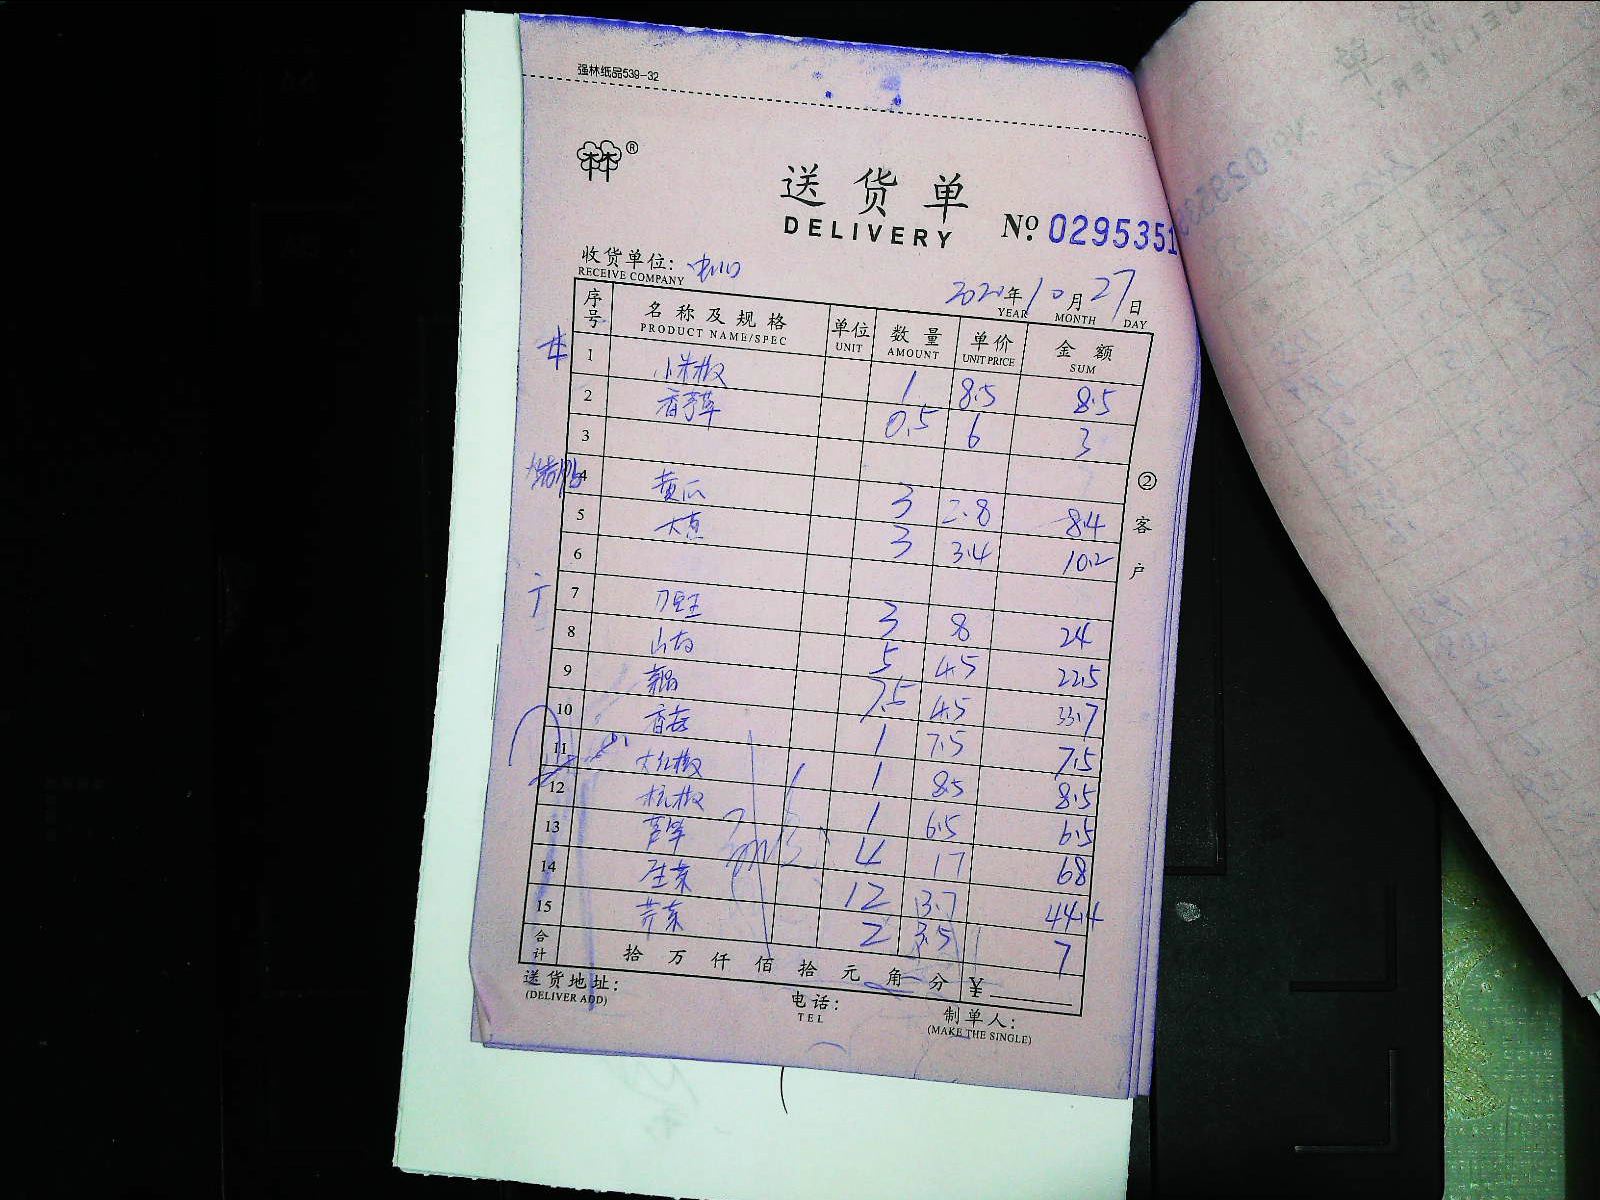 强林纸品539-32
林林®
送货单
DELIVERY
No. 0295351
收货单位:
RECEIVE COMPANY
2020年10月27日
YEAR MONTH DAY
序号 名称及规格 单位 数量 单价 金额
PRODUCT NAME/SPEC UNIT AMOUNT UNIT PRICE SUM
1 小米椒 1 8.5 8.5
2 香芋草 0.5 6 3
3
4 黄瓜 3 2.8 8.4
5 大克 3 3.4 10.2
6
7 刀豆 3 8 24
8 山药 5 4.5 22.5
9 7.5 4.5 33.7
10 香菇 1 7.5 7.5
11 大红椒 1 8.5 8.5
12 杭椒 1 6.5 6.5
13 芦笋 4 17 68
14 生菜 12 3.7 44.4
15 芹菜 2 3.5 7
合计 拾万仟佰拾元角分 ¥
送货地址:
(DELIVER ADD)
电话:
TEL
制单人:
(MAKE THE SINGLE)
②客户